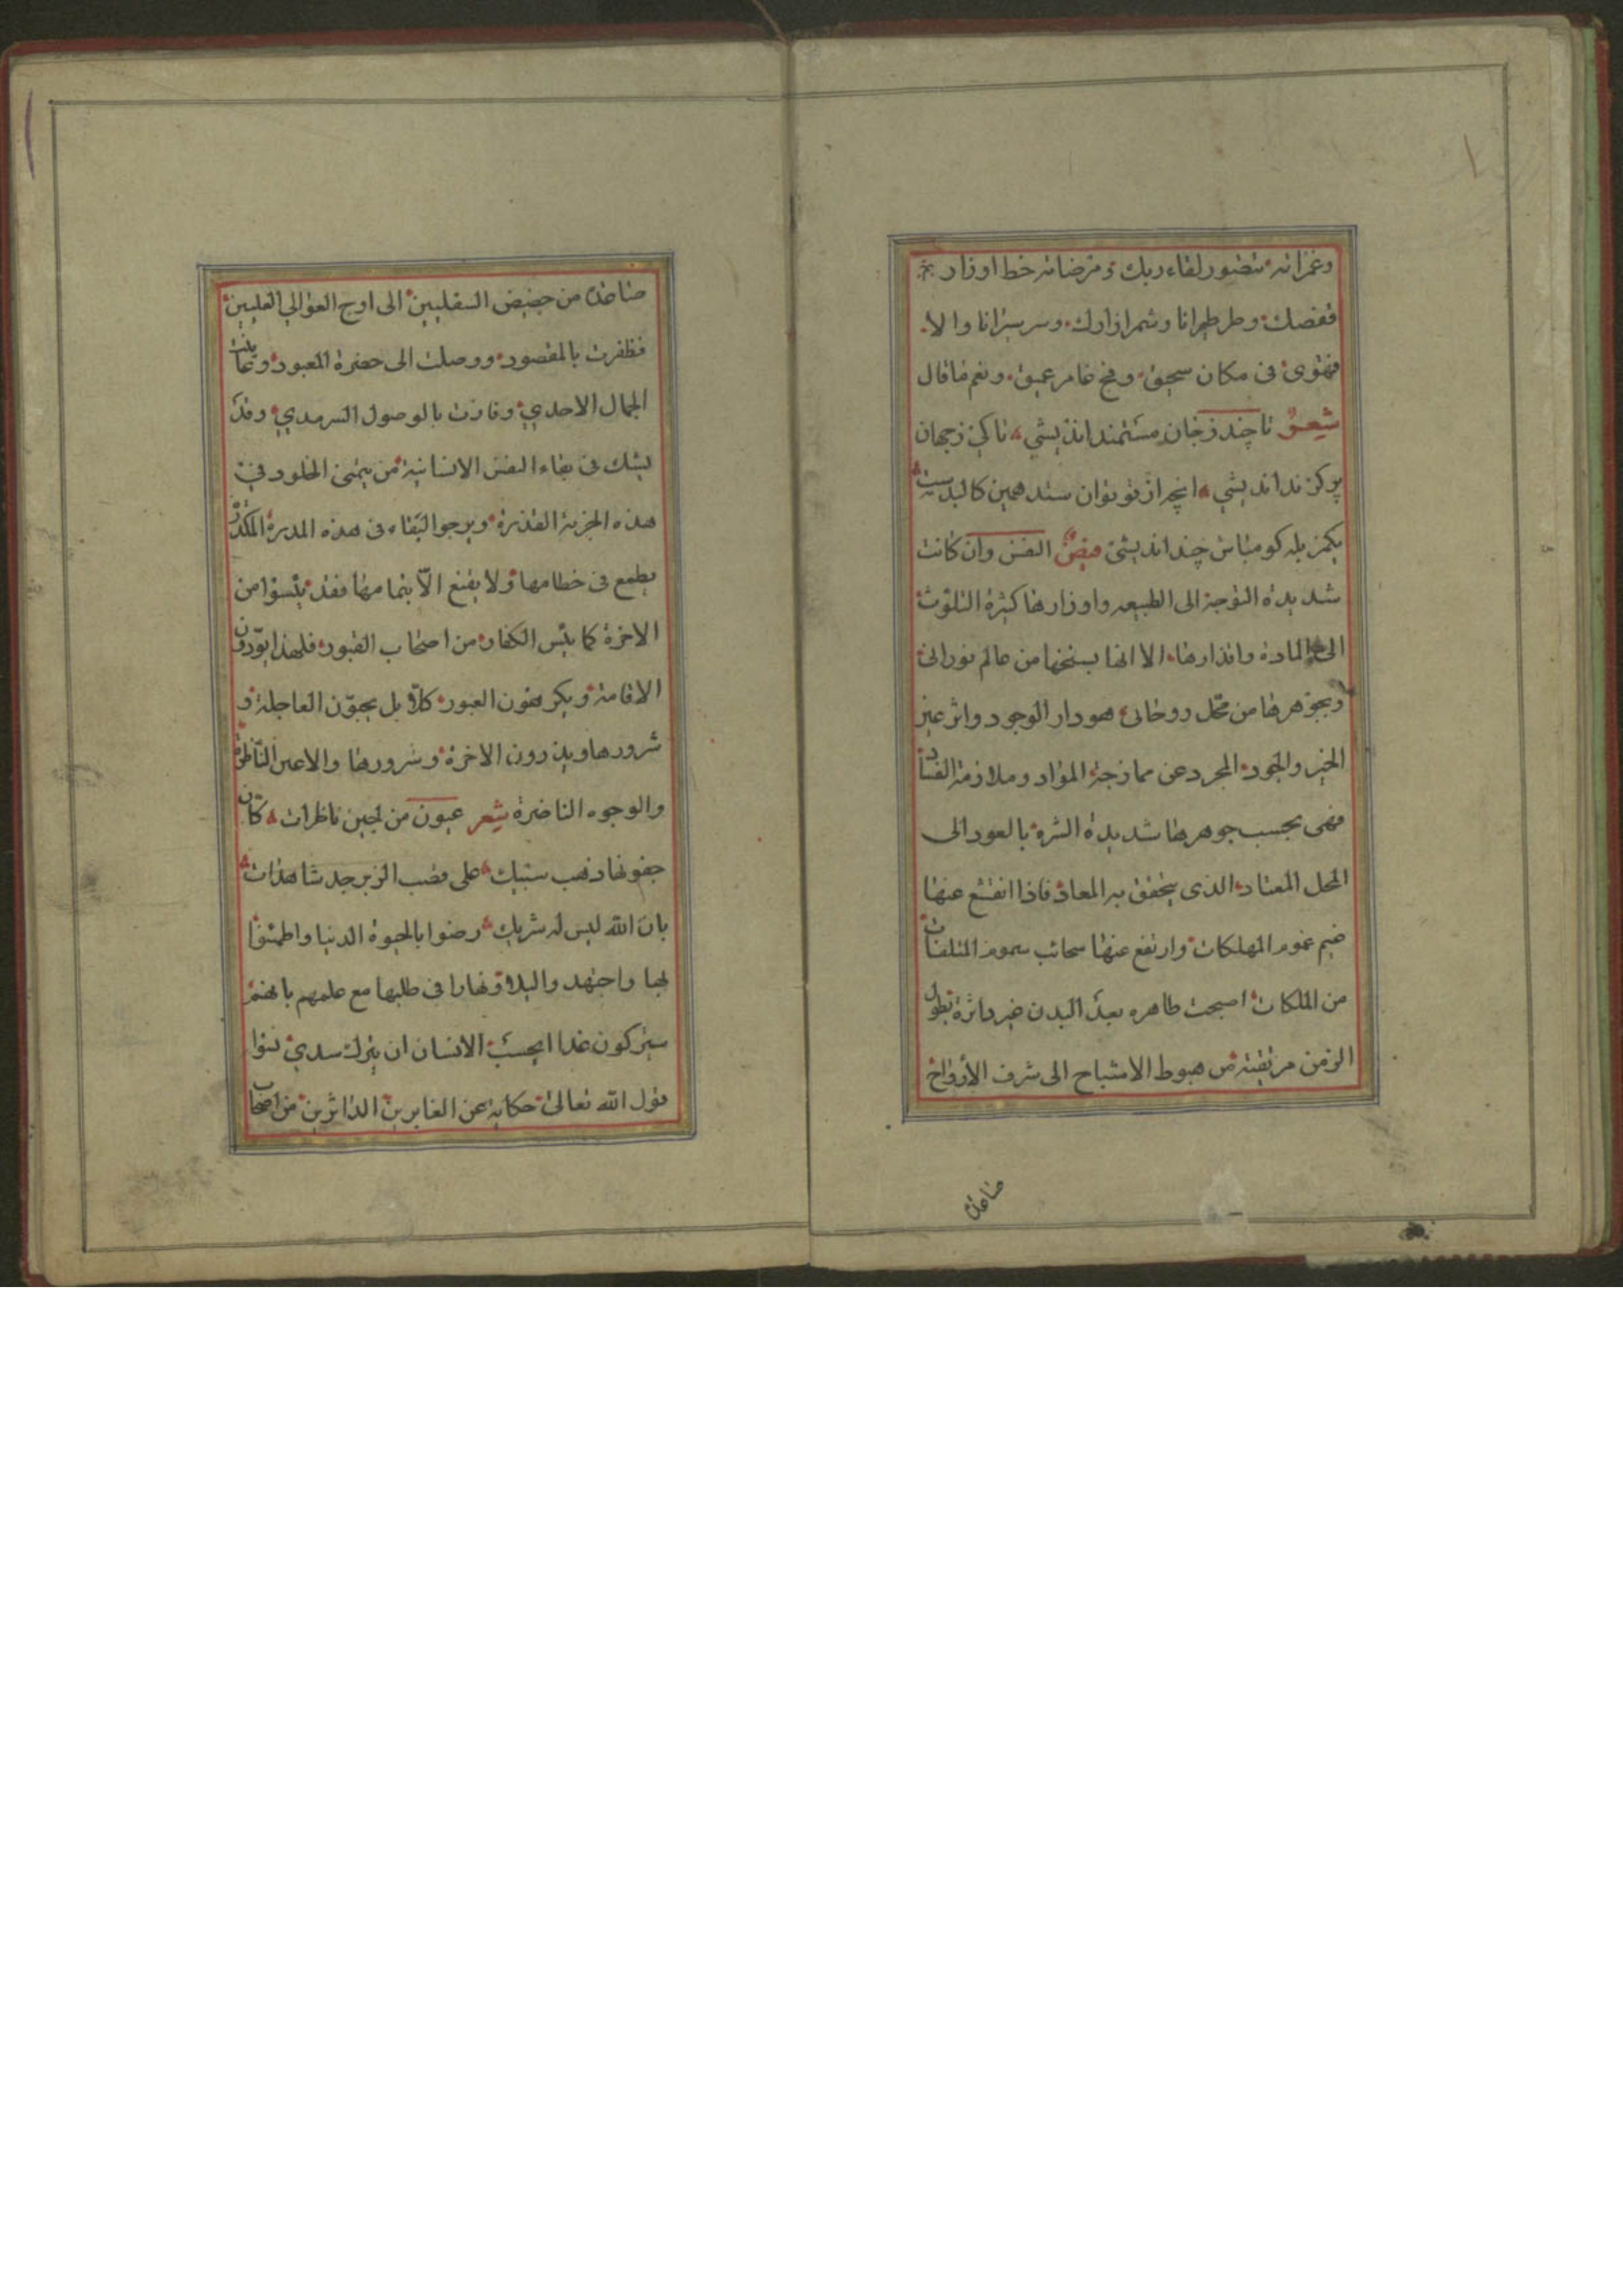 وغفرانه تتصور لقاء ربك ومرضاته حط اوزار
قفصك وطر طيرانا وشمر ازارك وسر سيرانا والا
فتهوى فى مكان سحيق وفج غامر عميق ونعم ما قال
شعر تا چند ز جان مستمند انديشى تا كى ز جهان
پر گزند انديشى انچه از تو توان ستد همين كالبدست
يك مزبله گو مباش چند انديشى فيض النفس وان كانت
شديدة التوجه الى الطبيعه واوزارها كثيرة التلوث
الى المادة واقذارها الا انها بسنخها من عالم نورانى
وبجوهرها من محل روحانى هو دار الوجود واثر عين
الخير والجود المجرد عن ممازجة المواد وملازمة الفساد
فهى بحسب جوهرها شديدة الشره بالعود الى
المحل المعتاد الذى يتحقق به المعاد فاذا انقشع عنها
غيم غموم المهلكات وارتفع عنها سحائب سموم المتلفات
من الملكات اصبحت طاهره بعد البدن غير داثرة بطول
الزمن مرتقية من هبوط الاشباح الى شرف الأرواح
صاعدة
صاعدة من حضيض السفليين الى اوج العوالي العليين
فظفرت بالمقصود ووصلت الى حضرة المعبود وعاينت
الجمال الاحدي وفازت بالوصول السرمدي وقد
يشك فى بقاء النفس الانسانية من يتمنى الخلود في
هذه الخربة القذرة ويرجو البقاء فى هذه المدرة المكدرة
يطمع فى حطامها ولا يقنع الّا بتمامها فقد يئسوا من
الاخرة كما يئس الكفار من اصحاب القبور فلهذا يودّون
الاقامة ويكرهون العبور كلّا بل يحبّون العاجلة و
شرورها ويذرون الاخرة وسرورها والاعين النّاظرة
والوجوه الناضرة شعر عيون من لجين ناظرات كانّ
جفونها ذهب سبيك على قضب الزبرجد شاهدات
بان الله ليس له شريك رضوا بالحيوة الدنيا واطمئنوا
بها واجتهدوا ليلا ونهارا فى طلبها مع علمهم بانهم
سيتركون غدا ايحسب الانسان ان يترك سدي نسوا
قول الله تعالى حكاية عن الغابرين الداثرين من اصحاب